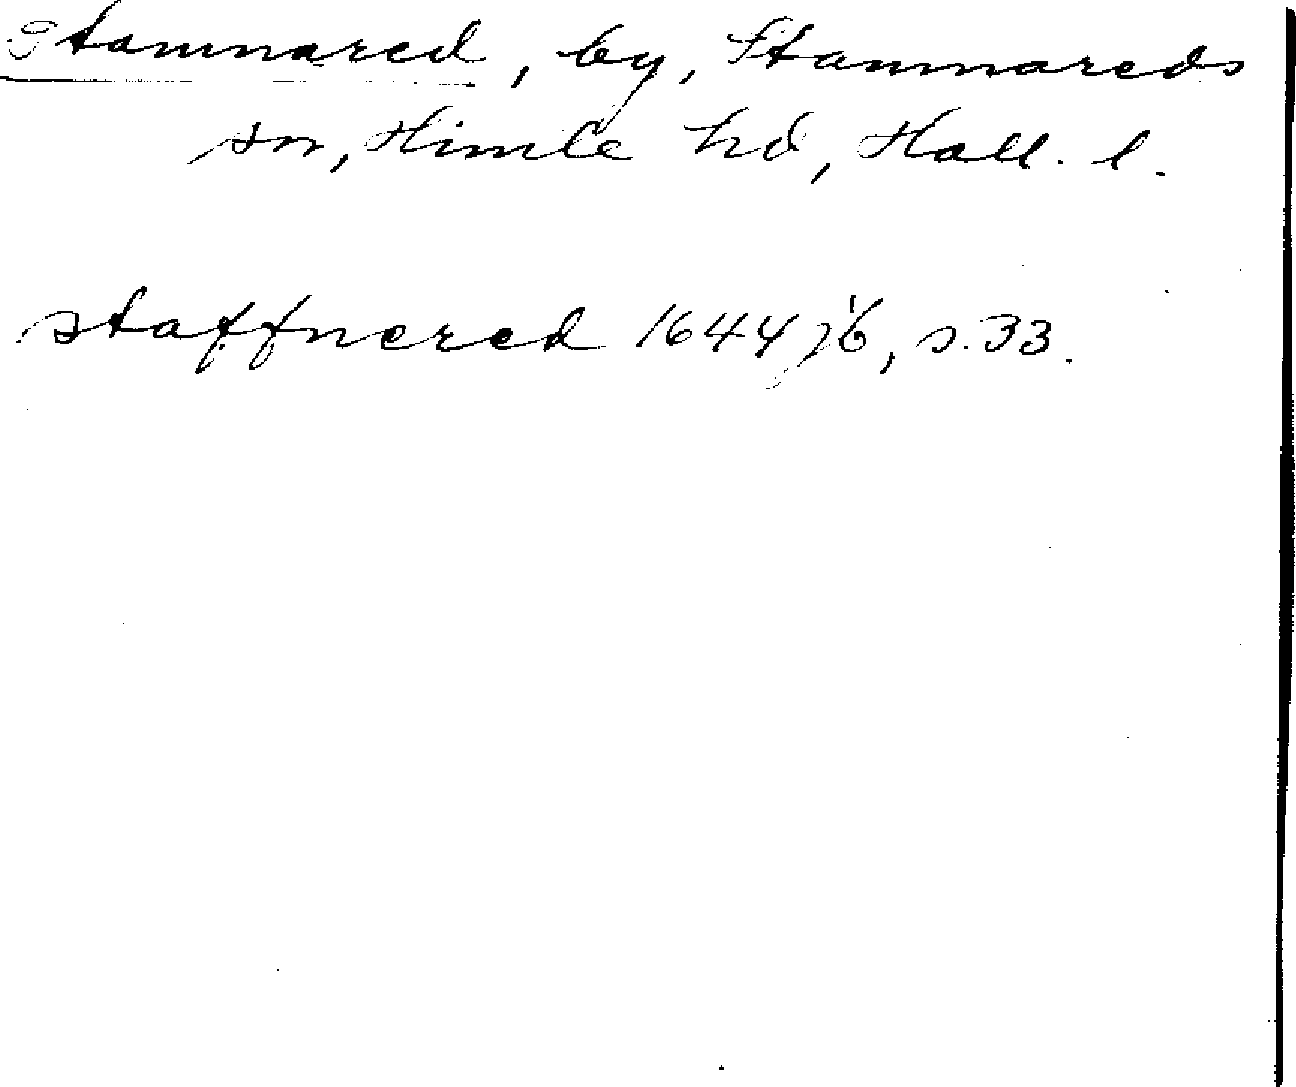 Stamnared, by, Stamnareds
sn, Himle hd, Hall. l.
staffnered 1644 jb, s. 33.